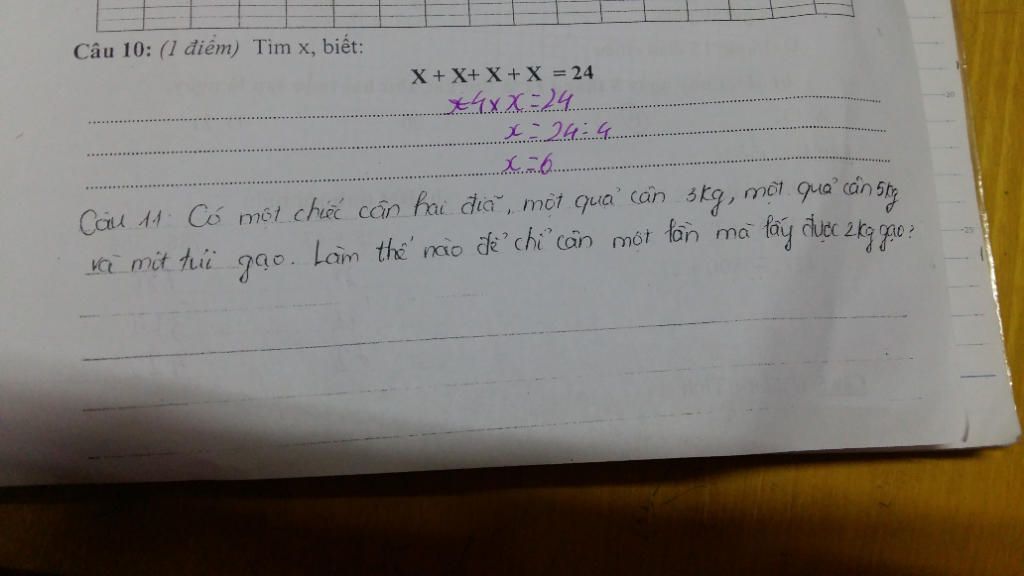 Câu 10: (1 điểm) Tìm x, biết:
X + X+ X + X = 24
4 x x = 24
x = 24 : 4
x = 6
Câu 11: Có một chiếc cân hai đĩa, một quả cân 3kg, một quả cân 5kg
và một túi gạo. Làm thế nào để chỉ cân một lần mà lấy được 2kg gạo?